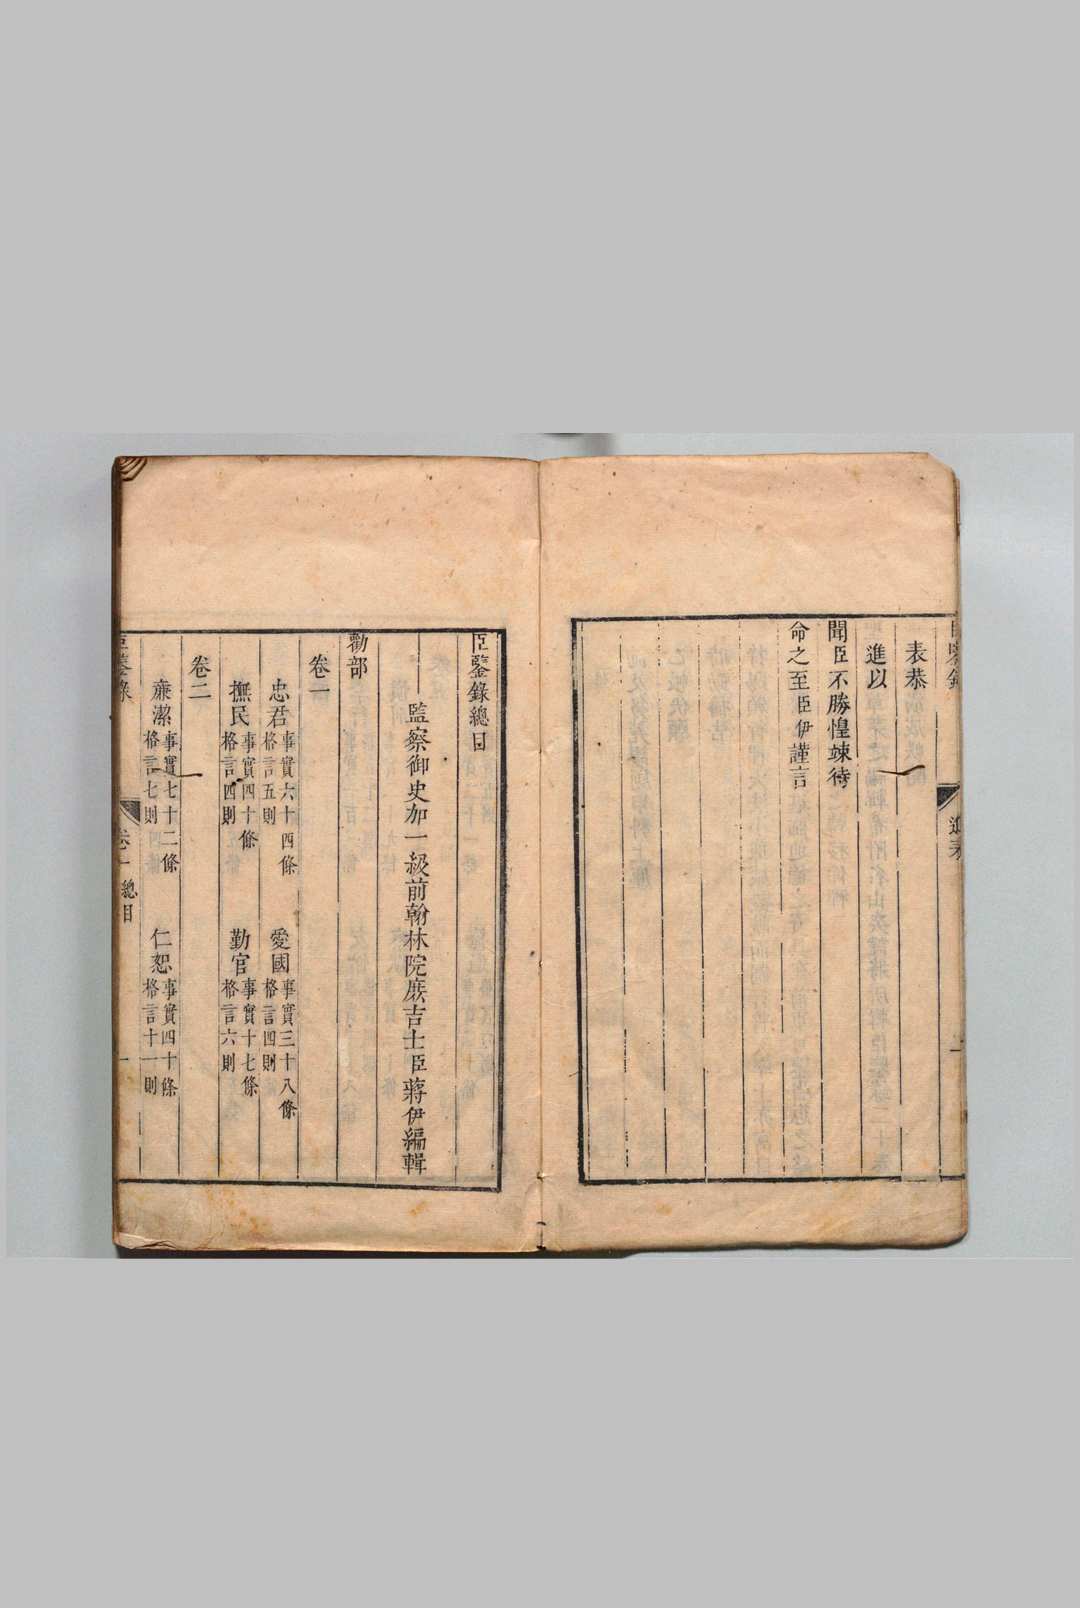 表恭
進以
聞臣不勝惶竦待
命之至臣伊謹言
進表
臣鑒錄總目
監察御史加一級前翰林院庶吉士臣蔣伊編輯
勸部
卷一
忠君 事實六十四條 格言五則 愛國 事實三十八條 格言四則
撫民 事實四十條 格言四則 勤官 事實十七條 格言六則
卷二
廉潔 事實七十二條 格言七則 仁恕 事實四十條 格言十一則
臣鑒錄 卷一 總目 一